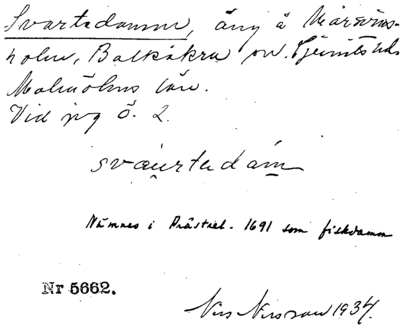 Svartadamm, äng å Marsvins-
holm, Balkåkra sn. Ljunits hd.
Malmöhus län.
Vid jvg ö. 2.
Nämnes i Prästrel. 1691 som fiskdamm
Nr 5662.
Nils Nilsson 1934.